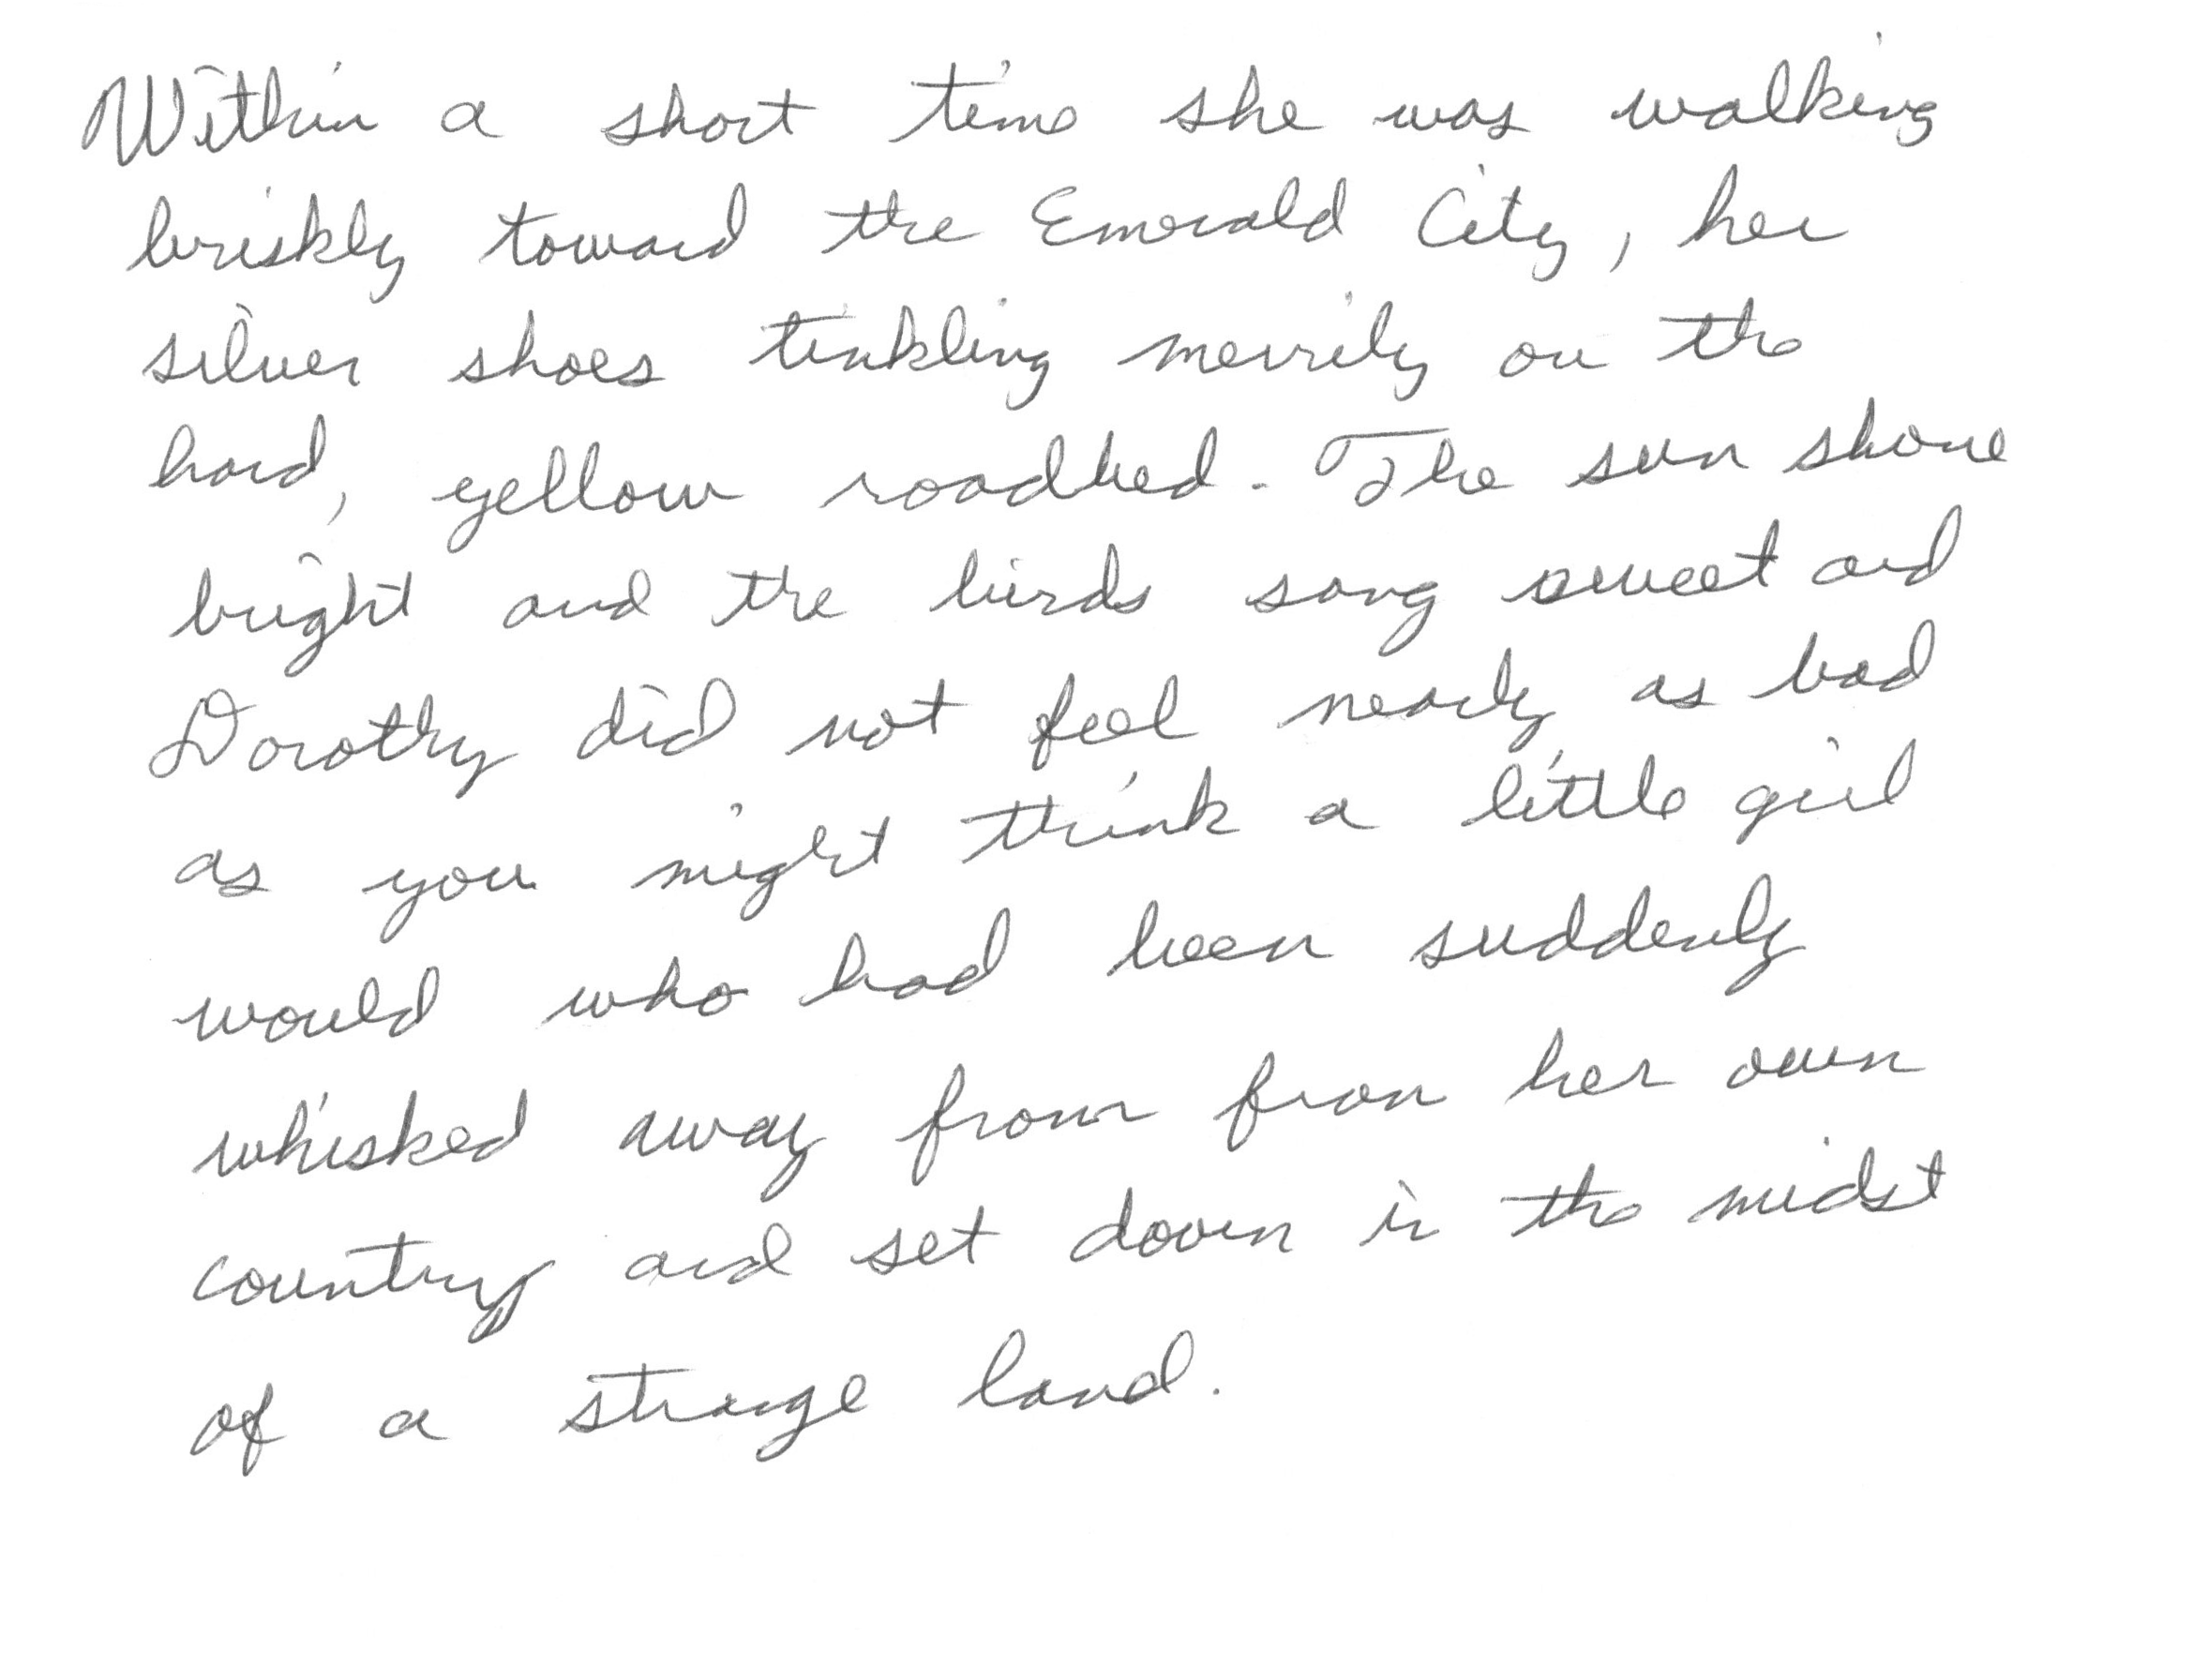 Within a short time she was walking
briskly toward the Emerald City, her
silver shoes tinkling merrily on the
hard, yellow roadbed. The sun shone
bright and the birds sang sweet and
Dorothy did not feel nearly as bad
as you might think a little girl
would who had been suddenly
whisked away from from her own
country and set down in the midst
of a strange land.